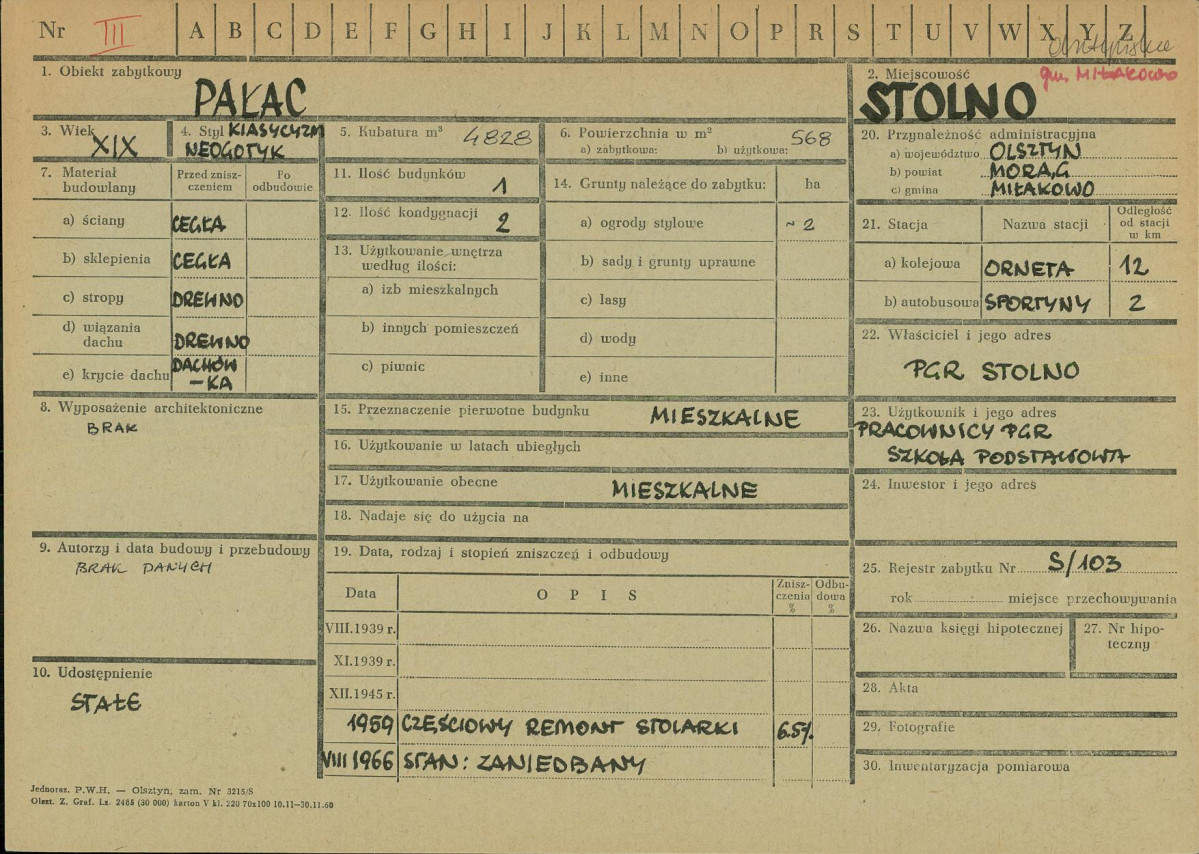 Nr III A B C D E F G H I J K L M N O P R S T U V W X Y Z
Olsztyńskie
gm. MIŁAKOWO
1. Obiekt zabytkowy
PAŁAC
2. Miejscowość
STOLNO
3. Wiek
XIX
4. Styl KLASYCYZM
NEOGOTYK
5. Kubatura m³ 4828
6. Powierzchnia w m² 568
a) zabytkowa: b) użytkowa:
7. Materiał budowlany
Przed zniszczeniem
Po odbudowie
a) ściany CEGŁA
b) sklepienia CEGŁA
c) stropy DREWNO
d) wiązania dachu DREWNO
e) krycie dachu DACHÓW
—KA
8. Wyposażenie architektoniczne
BRAK
9. Autorzy i data budowy i przebudowy
BRAK DANYCH
10. Udostępnienie
STAŁE
11. Ilość budynków 1
12. Ilość kondygnacji 2
13. Użytkowanie wnętrza
według ilości:
a) izb mieszkalnych
b) innych pomieszczeń
c) piwnic
14. Grunty należące do zabytku: ha
a) ogrody stylowe ~ 2
b) sady i grunty uprawne
c) lasy
d) wody
e) inne
15. Przeznaczenie pierwotne budynku MIESZKALNE
16. Użytkowanie w latach ubiegłych
17. Użytkowanie obecne MIESZKALNE
18. Nadaje się do użycia na
19. Data, rodzaj i stopień zniszczeń i odbudowy
Data O P I S Zniszczenia % Odbudowa %
VIII.1939 r.
XI.1939 r.
XII.1945 r.
1959 CZĘŚCIOWY REMONT STOLARKI 6.5%
VIII 1966 STAN: ZANIEDBANY
20. Przynależność administracyjna
a) województwo OLSZTYN
b) powiat MORĄG
c) gmina MIŁAKOWO
21. Stacja Nazwa stacji Odległość od stacji w km
a) kolejowa ORNETA 12
b) autobusowa SPORTYNY 2
22. Właściciel i jego adres
PGR STOLNO
23. Użytkownik i jego adres
PRACOWNICY PGR
SZKOŁA PODSTAWOWA
24. Inwestor i jego adres
25. Rejestr zabytku Nr S/103
rok miejsce przechowywania
26. Nazwa księgi hipotecznej
27. Nr hipoteczny
28. Akta
29. Fotografie
30. Inwentaryzacja pomiarowa
Jednoraz. P.W.H. — Olsztyn, zam. Nr 3215/S
Olszt. Z. Graf. Lz. 2465 (30 000) karton V kl. 220 70x100 10.11—30.11.60